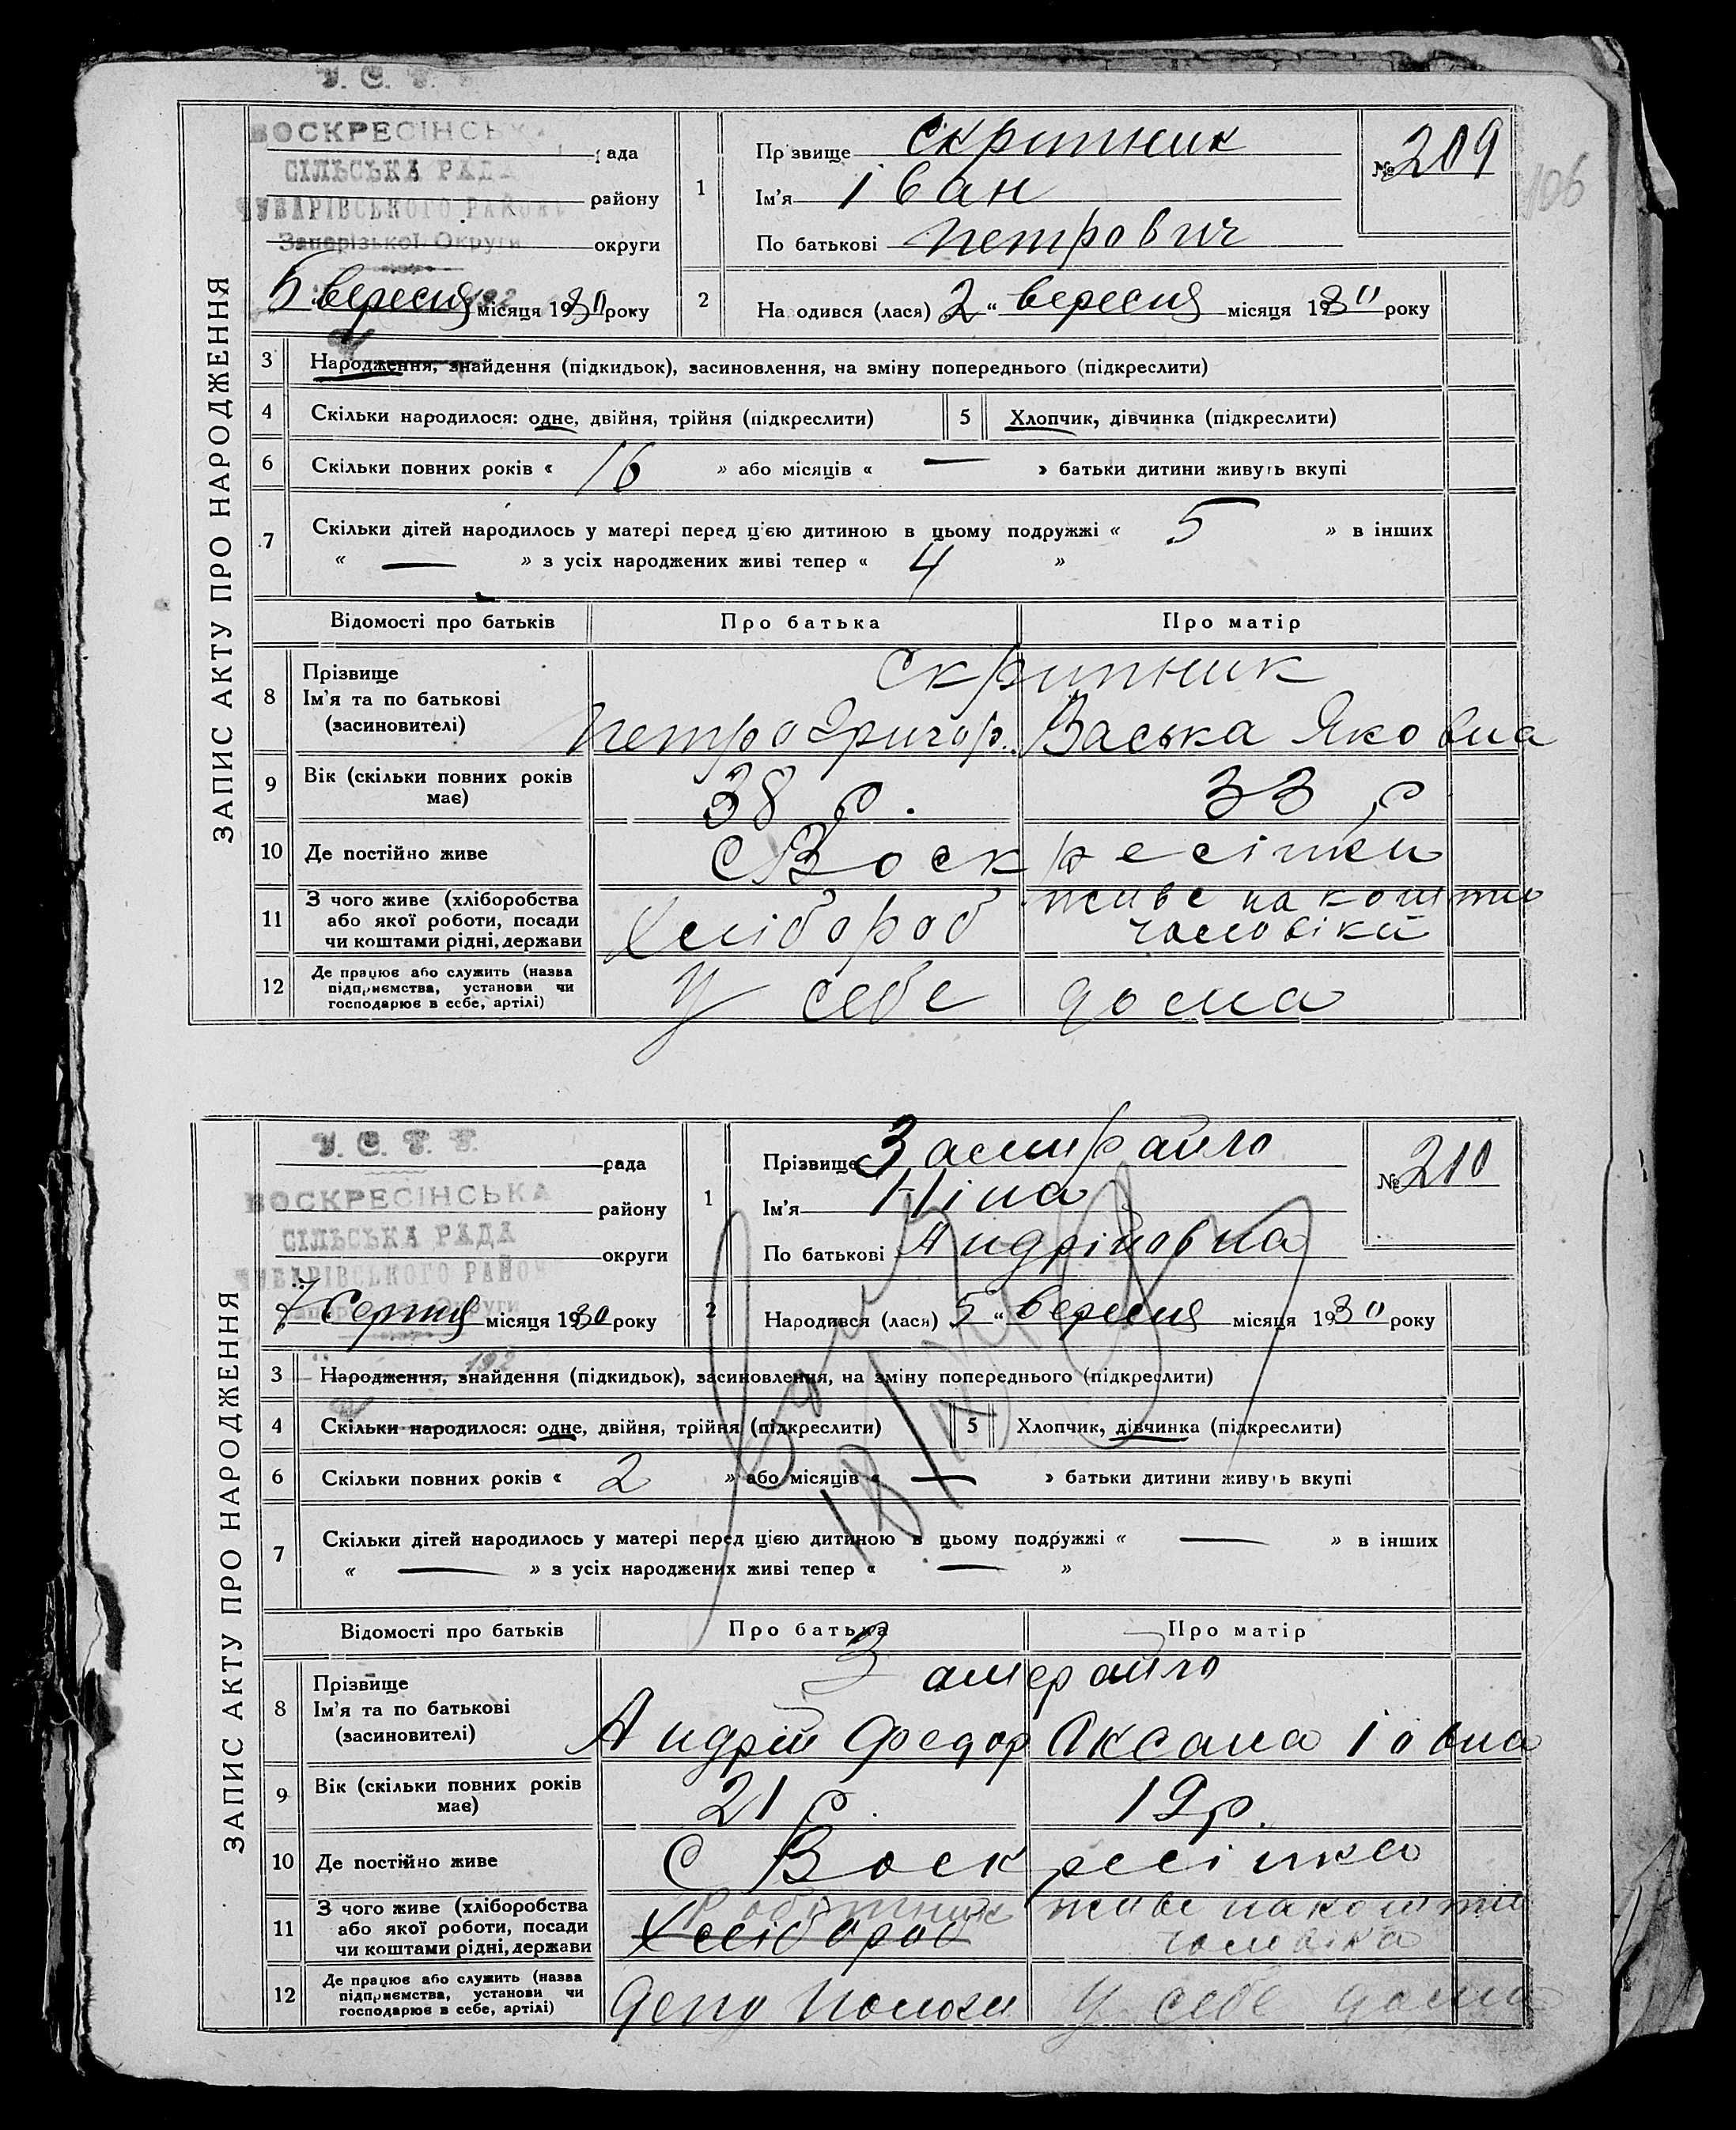 У. С. Р. Р.
ВОСКРЕСІНСЬКА рада
СІЛЬСЬКА РАДА
ЧУБАРІВСЬКОГО РАЙОНУ району
Запорізької Округи округи
5 вересня місяця 1930 року
192
№ 209
106
ЗАПИС АКТУ ПРО НАРОДЖЕННЯ
1 Прізвище Скрипник
Ім'я Іван
По батькові Петрович
2 Народився (лася) 2 " вересня місяця 1930 року
3 Народження, знайдення (підкидьок), засиновлення, на зміну попереднього (підкреслити)
4 Скільки народилося: одне, двійня, трійня (підкреслити) 5 Хлопчик, дівчинка (підкреслити)
6 Скільки повних років « 16 » або місяців « — » батьки дитини живуть вкупі
7 Скільки дітей народилось у матері перед цією дитиною в цьому подружжі « 5 » в інших
« — » з усіх народжених живі тепер « 4 »
Відомості про батьків Про батька Про матір
8 Прізвище Скрипник
Ім'я та по батькові
(засиновителі) Петро Григор. Васька Яковна
9 Вік (скільки повних років має) 38 р. 33 р
10 Де постійно живе С Воскресінки
11 З чого живе (хліборобства
або якої роботи, посади
чи коштами рідні, держави Хлібороб живе на кошти
чоловіка
12 Де працює або служить (назва
підприємства, установи чи
господарює в себе, артілі) У себе дома
У. С. Р. Р.
рада
ВОСКРЕСІНСЬКА району
СІЛЬСЬКА РАДА
округи
ЧУБАРІВСЬКОГО РАЙОНУ
Запорізької Округи
7 серпня місяця 1930 року
192
№ 210
ЗАПИС АКТУ ПРО НАРОДЖЕННЯ
1 Прізвище Замирайло
Ім'я Ніна
По батькові Андрійовна
2 Народився (лася) 5 " вересня місяця 1930 року
3 Народження, знайдення (підкидьок), засиновлення, на зміну попереднього (підкреслити)
4 Скільки народилося: одне, двійня, трійня (підкреслити) 5 Хлопчик, дівчинка (підкреслити)
6 Скільки повних років « 2 » або місяців « — » батьки дитини живуть вкупі
7 Скільки дітей народилось у матері перед цією дитиною в цьому подружжі « — » в інших
« — » з усіх народжених живі тепер « — »
Відомості про батьків Про батька Про матір
8 Прізвище Замерайло
Ім'я та по батькові
(засиновителі) Андрій Федор Оксана Іовна
9 Вік (скільки повних років має) 21 р. 19 р.
10 Де постійно живе С Воскресінка
11 З чого живе (хліборобства
або якої роботи, посади
чи коштами рідні, держави Робітник Хлібороб живе на кошти
чоловіка
12 Де працює або служить (назва
підприємства, установи чи
господарює в себе, артілі) Депо Пологи У себе дома